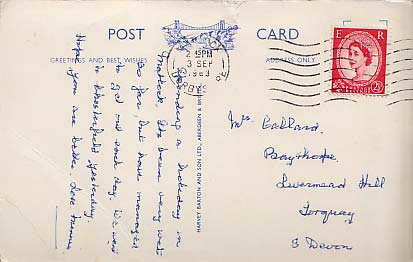 POST
CARD
GREETINGS AND BEST WISHES
ADDRESS ONLY
E R
2½
45 PM
3 SEP
1963
DERBYSHIRE
Spending a holiday in
Matlock. Its been very wet
so far, but have managed
to get out each day. We went
to Chesterfield yesterday.
Hope you are better. Love
HARVEY BARTON AND SON LTD., ABERDEEN & BRISTOL
Mrs Ballard.
Baythorpe.
Livermead Hill
Torquay
S Devon